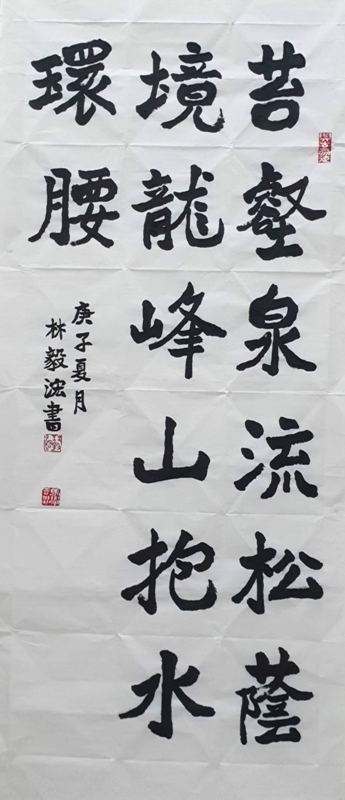 苔壑泉流松蔭
境龍峰山抱水
環腰
庚子夏月
林毅浤書